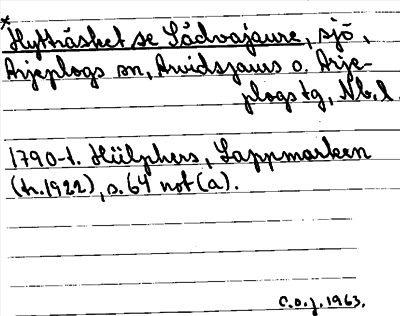 *Hytträsket se Sädvajaure, sjö,
Arjeplogs sn, Arvidsjaurs o. Arje-
plogs tg, Nb.l.
1790-t. Hülphers, Lappmarken
(tr. 1922), s. 64 not (a).
C.O.J. 1963.